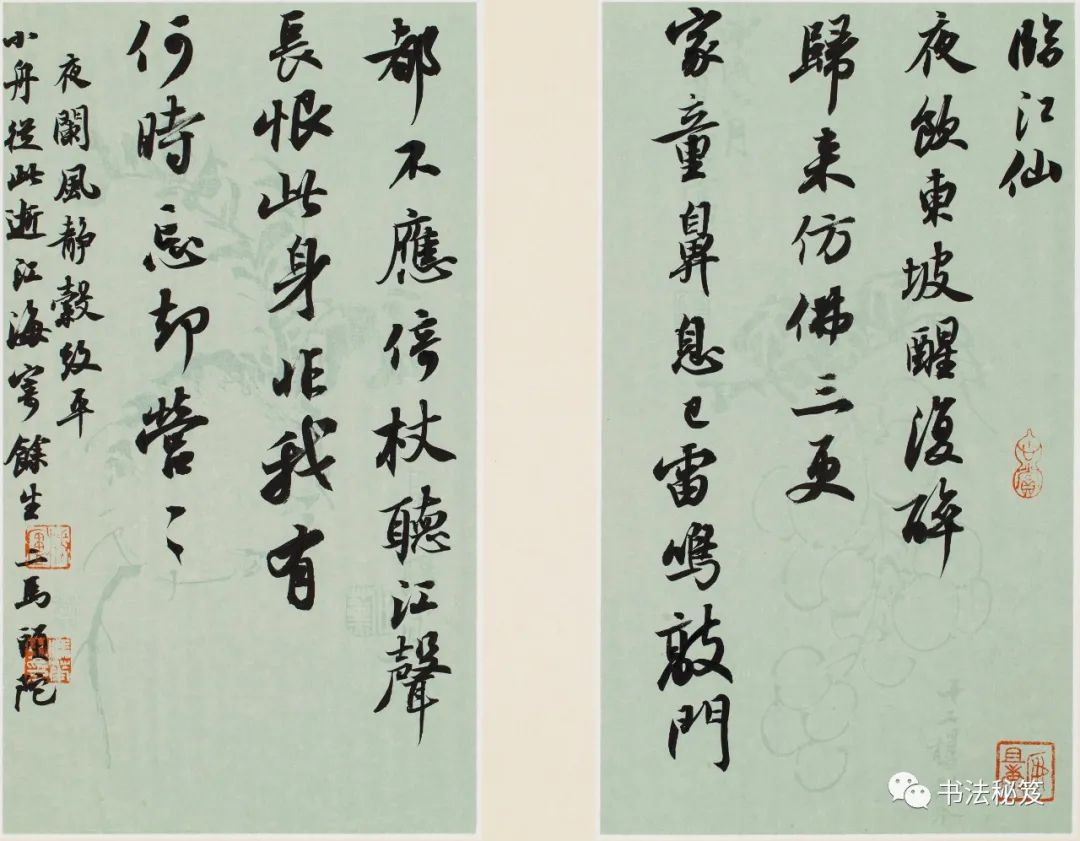 臨江仙
夜飲東坡醒復醉
歸来仿佛三更
家童鼻息已雷鳴敲門
都不應倚杖聽江聲
長恨此身非我有
何時忘却營〻
夜闌風静縠紋平
小舟從此逝江海寄餘生 二馬頭陀
书法秘笈